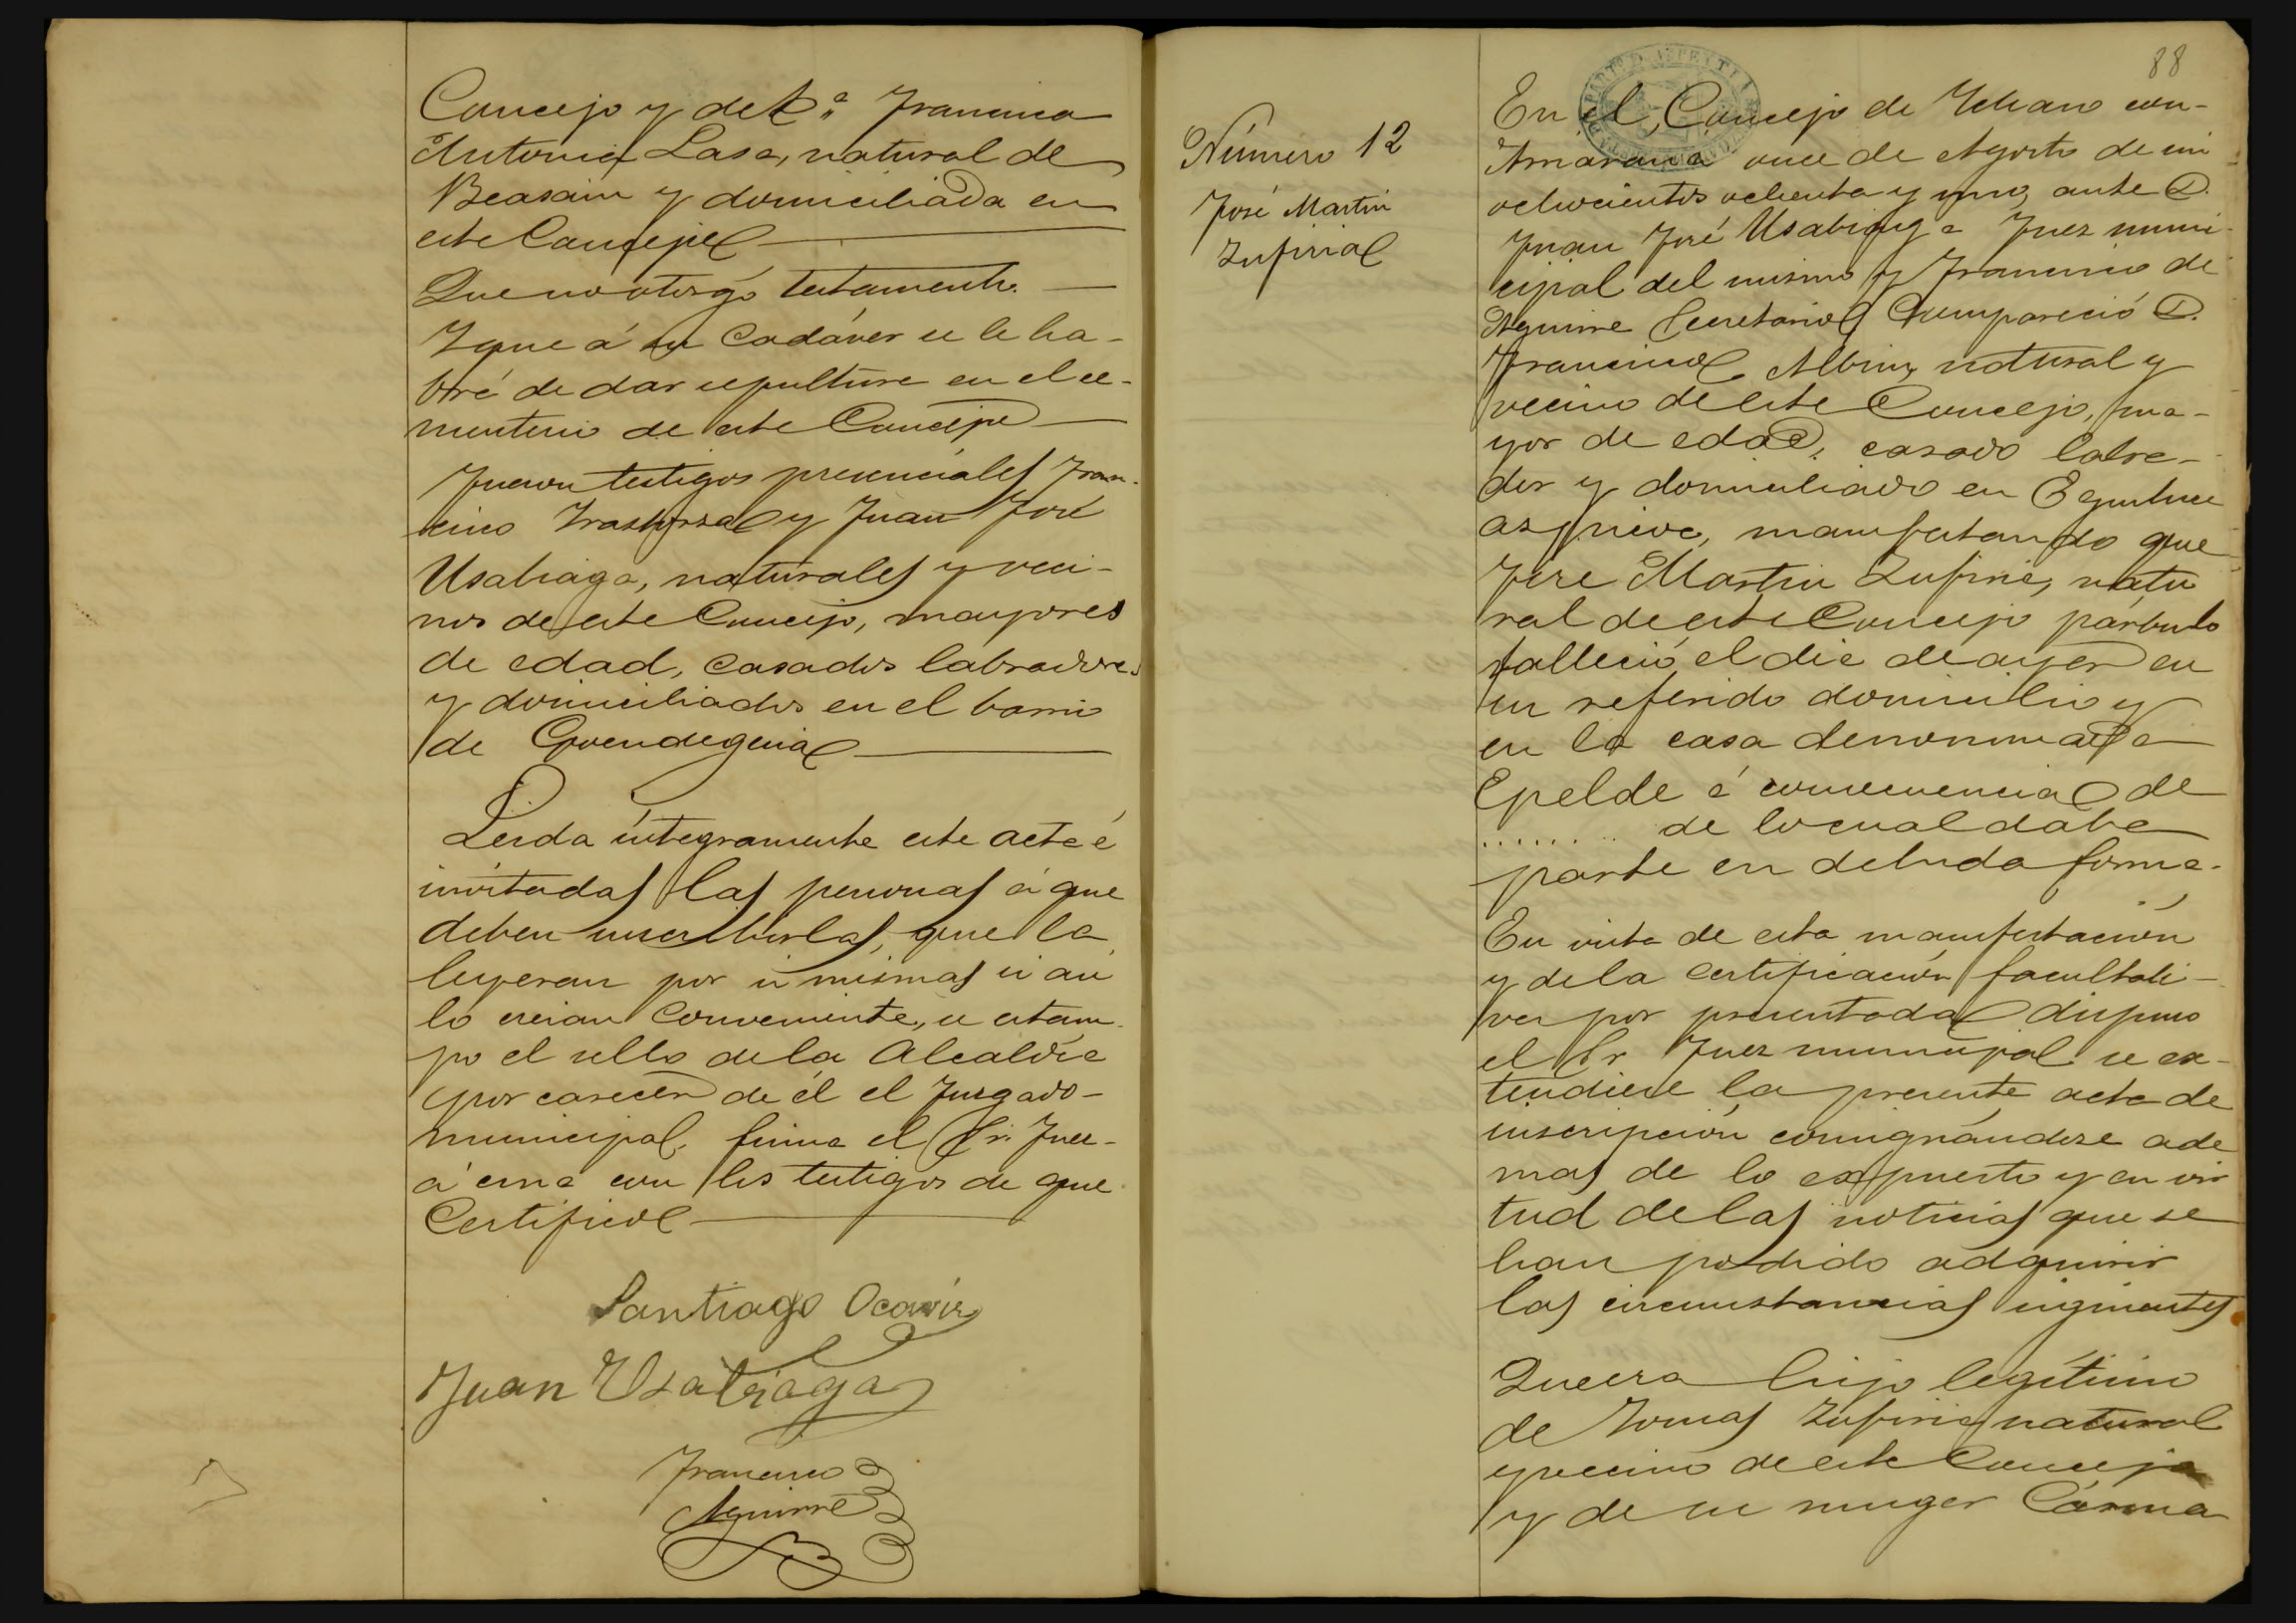 Concejo y de D.ª Francisca
Antonia Lasa, natural de
Beasain y domiciliada en
este Concejo
Que no otorgó testamento.
Y que á su cadáver se le ha-
brá de dar sepultura en el ce-
menterio de este Concejo
Fueron testigos presenciales Fran-
cisco y Juan José
Usabiaga, naturales y veci-
nos de este Concejo, mayores
de edad, casados labradores
y domiciliados en el barrio
de Goendeguia
Leida íntegramente este acta é
invitadas las personas á que
deben suscribirlas, que la
leyeran por si mismas si asi
lo creian conveniente, se estam-
po el sello de la Alcaldía
por carecer de él el Juzgado-
municipal, firma el Sr. Juez-
á una con los testigos de que
Certifico
Santiago
Juan Usabiaga
Francisco
Aguirre
88
Número 12
José Martin
Zufiria
En el Concejo de Ichaso con-
once de Agosto de mi
ochocientos ochenta y uno, ante D.
Juan José Usabiaga Juez muni-
cipal del mismo y Francisco de
Aguirre Secretario Compareció D.
Francisco Albizu, natural y
vecino de este Concejo, ma-
yor de edad, casado labra-
dor y domiciliado en
manifestando que
José Martin Zufiria, natu
ral de este Concejo párbulo
falleció el dia de ayer en
su referido domicilio y
en la casa denominada
Epelde á consecuencia de
....... de lo cual daba
parte en debida forma.
En vista de esta manifestación
y de la certificación facultati-
va por presentada dispuso
el Sr. Juez municipal se ex-
tendiese la presente acta de
inscripción consignándose ade
mas de lo expuesto y en vir
tud de las noticias que se
han podido adquirir
las circunstancias siguientes
Que era hijo legítimo
de Tomas Zufiria natural
y vecino de este Concejo
y de su muger